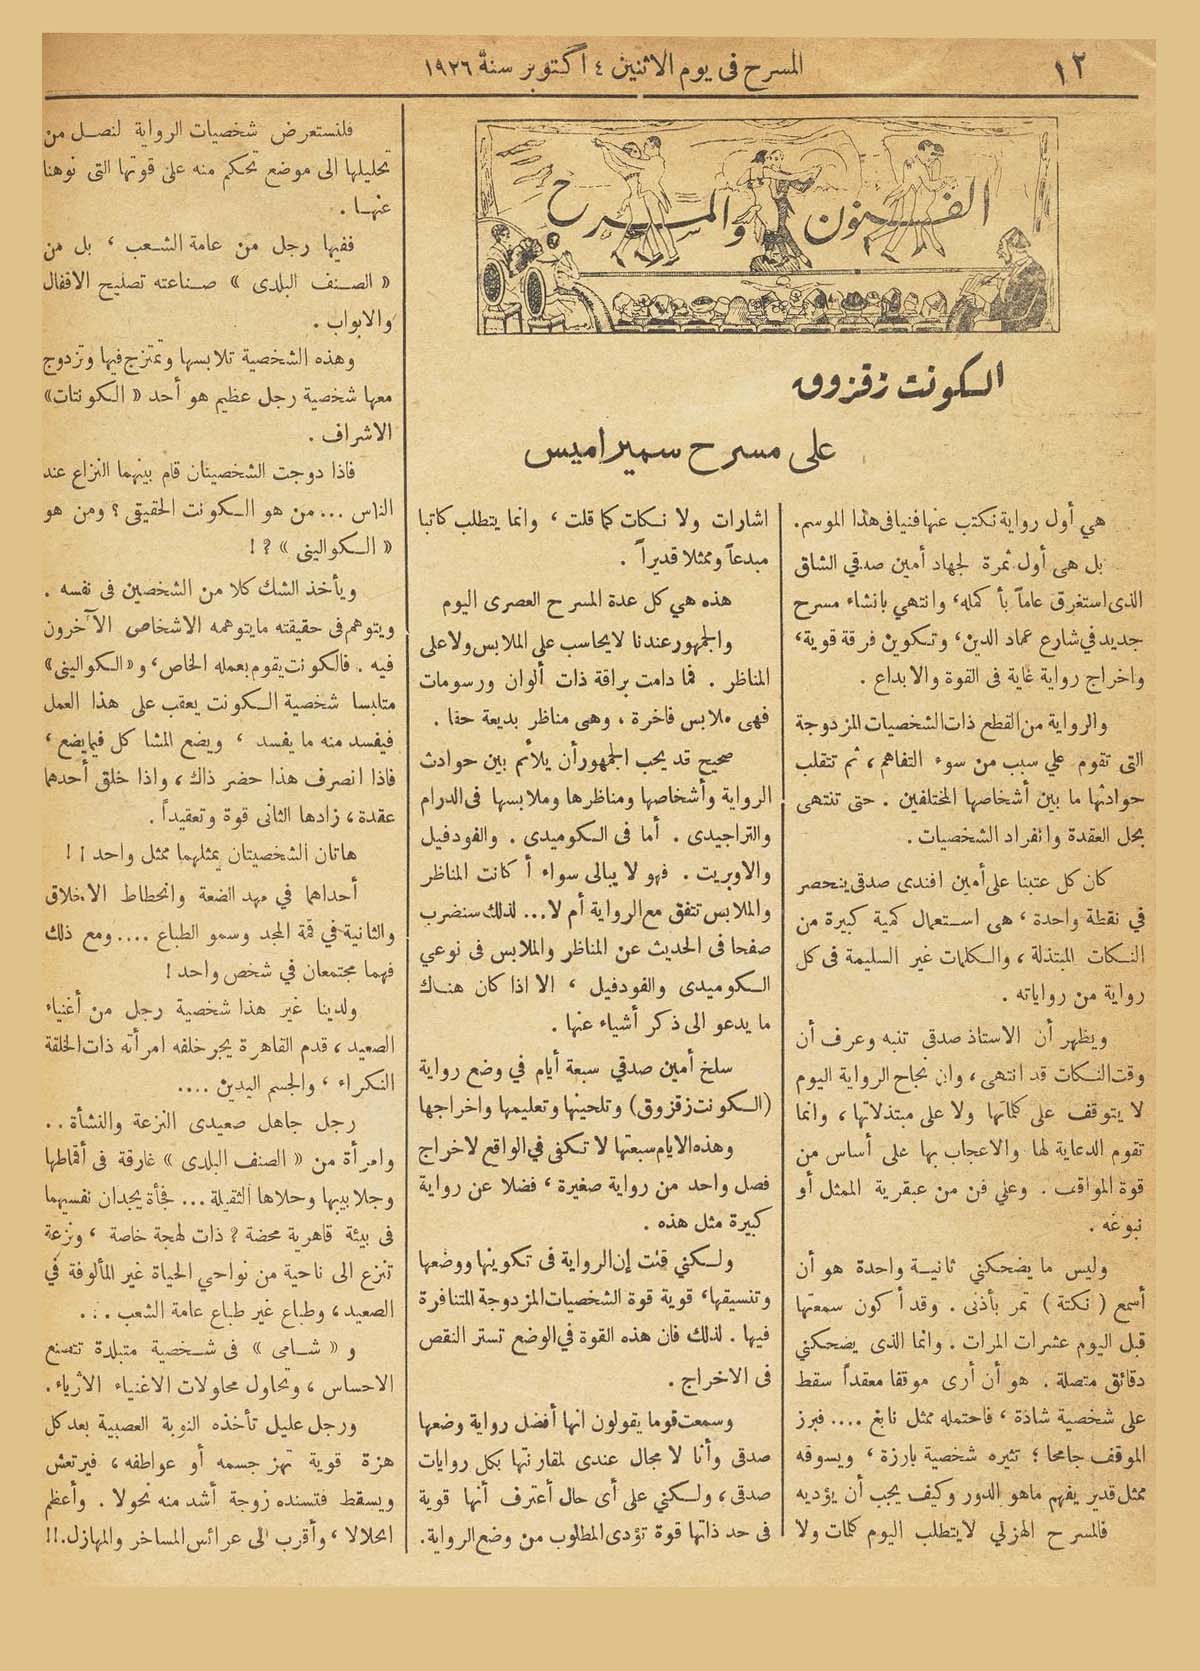 ١٢
المسرح فى يوم الاثنين ٤ أكتوبر سنة ١٩٢٦
الفنون والمسرح
الكونت زقزوق
على مسرح سميراميس
هي أول رواية نكتب عنها فنيا فى هذا الموسم.
بل هى أول ثمرة لجهاد أمين صدقي الشاق
الذى استغرق عاماً بأكمله، وانتهي بانشاء مسرح
جديد في شارع عماد الدين، وتكوين فرقة قوية،
واخراج رواية غاية فى القوة والابداع .
والرواية من القطع ذات الشخصيات المزدوجة
التى تقوم علي سبب من سوء التفاهم، ثم تتقلب
حوادثها ما بين أشخاصها المختلفين . حتى تنتهى
بحل العقدة وانفراد الشخصيات .
كان كل عتبنا على أمين افندى صدقى ينحصر
في نقطة واحدة ، هى استعمال كمية كبيرة من
النكات المبتذلة ، والكلمات غير السليمة فى كل
رواية من رواياته .
ويظهر أن الاستاذ صدقى تنبه وعرف أن
وقت النكات قد انتهى ، وان نجاح الرواية اليوم
لا يتوقف على كلماتها ولا على مبتذلاتها ، وانما
تقوم الدعاية لها والاعجاب بها على أساس من
قوة المواقف . وعلي فن من عبقرية الممثل أو
نبوغه .
وليس ما يضحكني ثانية واحدة هو أن
أسمع ( نكتة ) تمر بأذنى . وقد أكون سمعتها
قبل اليوم عشرات المرات . وانما الذى يضحكني
دقائق متصلة . هو أن أرى موقفا معقداً سقط
على شخصية شاذة ، فاحتمله ممثل نابغ .... فبرز
الموقف جامحا ؛ تثيره شخصية بارزة ، ويسوقه
ممثل قدير يفهم ماهو الدور وكيف يجب أن يؤديه
فالمسرح الهزلي لا يتطلب اليوم كلمات ولا
اشارات ولا نكات كما قلت ، وانما يتطلب كاتبا
مبدعاً وممثلا قديراً .
هذه هي كل عدة المسرح العصرى اليوم
والجمهور عندنا لا يحاسب على الملابس ولا على
المناظر . فما دامت براقة ذات ألوان ورسومات
فهى ملابس فاخرة ، وهى مناظر بديعة حقا .
صحيح قد يحب الجمهور أن يلائم بين حوادث
الرواية وأشخاصها ومناظرها وملابسها فى الدرام
والتراجيدى . أما فى الكوميدى . والفودفيل
والاوبريت . فهو لا يبالى سواء أكانت المناظر
والملابس تتفق مع الرواية أم لا... لذلك سنضرب
صفحا فى الحديث عن المناظر والملابس فى نوعي
الكوميدى والفودفيل ، الا اذا كان هناك
ما يدعو الى ذكر أشياء عنها .
سلخ أمين صدقي سبعة أيام في وضع رواية
(الكونت زقزوق) وتلحينها وتعليمها واخراجها
وهذه الايام سبعتها لا تكفى في الواقع لاخراج
فصل واحد من رواية صغيرة ، فضلا عن رواية
كبيرة مثل هذه .
ولكني قلت إن الرواية فى تكوينها ووضعها
وتنسيقها، قوية قوة الشخصيات المزدوجة المتنافرة
فيها . لذلك فان هذه القوة في الوضع تستر النقص
فى الاخراج .
وسمعت قوما يقولون انها أفضل رواية وضعها
صدقى وأنا لا مجال عندى لمقارنتها بكل روايات
صدقى ، ولكني على أى حال أعترف أنها قوية
فى حد ذاتها قوة تؤدى المطلوب من وضع الرواية .
فلنستعرض شخصيات الرواية لنصل من
تحليلها الى موضع نحكم منه على قوتها التى نوهنا
عنها .
ففيها رجل من عامة الشعب ، بل من
« الصنف البلدى » صناعته تصليح الاقفال
والابواب .
وهذه الشخصية تلابسها وتمتزج فيها وتزدوج
معها شخصية رجل عظيم هو أحد « الكونتات»
الاشراف .
فاذا دوجت الشخصيتان قام بينهما النزاع عند
الناس ... من هو الكونت الحقيقى ؟ ومن هو
« الكوالينى » ؟ !
ويأخذ الشك كلا من الشخصين فى نفسه .
ويتوهم فى حقيقته مايتوهمه الاشخاص الآخرون
فيه . فالكونت يقوم بعمله الخاص، و«الكوالينى»
متلابسا شخصية الكونت يعقب على هذا العمل
فيفسد منه ما يفسد ، ويضع المشاكل فيما يضع ،
فاذا انصرف هذا حضر ذاك ، واذا خلق أحدهما
عقدة ، زادها الثانى قوة وتعقيداً .
هاتان الشخصيتان يمثلهما ممثل واحد ! !
أحداهما في مهد الضعة وانحطاط الاخلاق
والثانية في قمة المجد وسمو الطباع .... ومع ذلك
فهما مجتمعان في شخص واحد !
ولدينا غير هذا شخصية رجل من أغنياء
الصعيد ، قدم القاهرة يجر خلفه امرأته ذات الخلقة
النكراء ، والجسم البدين ....
رجل جاهل صعيدى النزعة والنشأة ..
وامرأة من « الصنف البلدى » غارقة فى أقماطها
وجلابيبها وحلاها الثقيلة ... فجأة يجدان نفسيهما
فى بيئة قاهرية محضة ؟ ذات لهجة خاصة ، ونزعة
تنزع الى ناحية من نواحي الحياة غير المألوفة في
الصعيد ، وطباع غير طباع عامة الشعب ...
و « شامى » فى شخصية متبلدة تتصنع
الاحساس ، وتحاول محاولات الاغنياء الاثرياء .
ورجل عليل تأخذه النوبة العصبية بعد كل
هزة قوية تهز جسمه أو عواطفه ، فيرتعش
ويسقط فتسنده زوجة أشد منه نحولا . وأعظم
انحلالا ، وأقرب الى عرائس المساخر والمهازل .!!